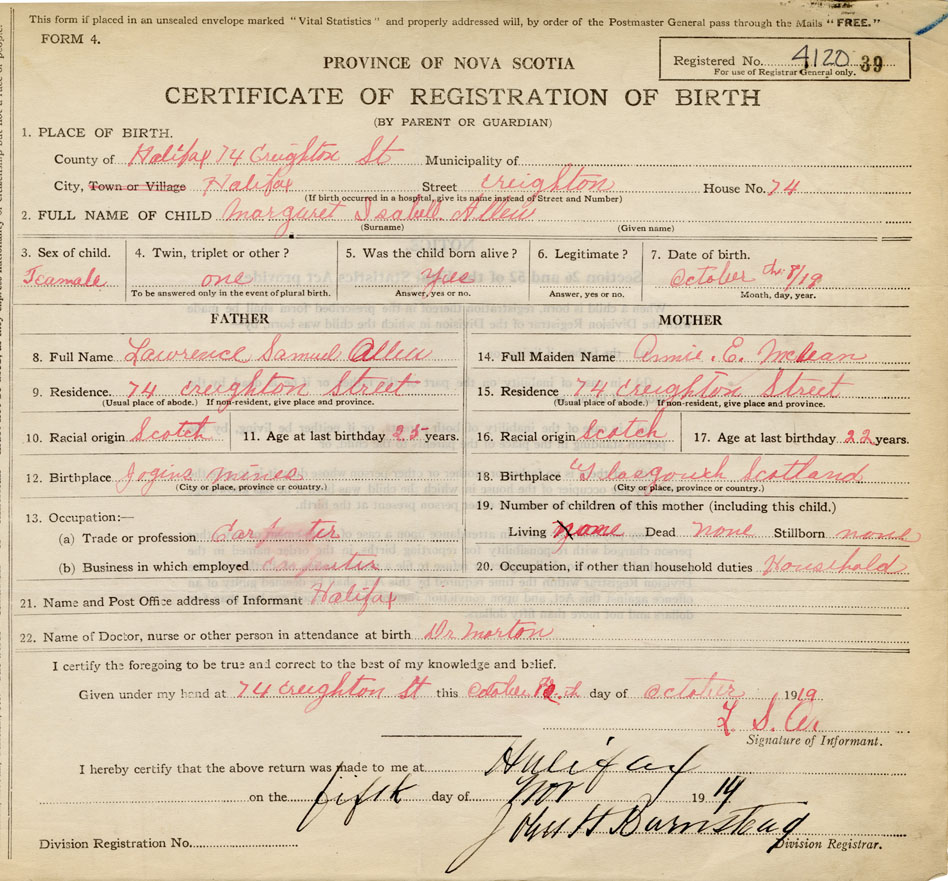 This form if placed in an unsealed envelope marked "Vital Statistics" and properly addressed will, by order of the Postmaster General pass through the Mails "FREE."
FORM 4.
Registered No. 4120 39
For use of Registrar General only.
PROVINCE OF NOVA SCOTIA
CERTIFICATE OF REGISTRATION OF BIRTH
(BY PARENT OR GUARDIAN)
1. PLACE OF BIRTH.
County of Halifax 74 Creighton St Municipality of
City, Town or Village Halifax Street Creighton House No. 74
(If birth occurred in a hospital, give its name instead of Street and Number)
2. FULL NAME OF CHILD Margaret Isabell Allen
(Surname) (Given name)
3. Sex of child. 4. Twin, triplet or other? 5. Was the child born alive? 6. Legitimate? 7. Date of birth?
Feamale one Yes October the 8/19
To be answered only in the event of plural birth. Answer, yes or no. Answer, yes or no. Month, day, year.
FATHER MOTHER
8. Full Name Lawrence Samuel Allen 14. Full Maiden Name Annie. E. McLean
9. Residence. 74 Creighton Street 15. Residence 74 Creighton Street
(Usual place of abode.) If non-resident, give place and province. (Usual place of abode.) If non-resident, give place and province.
10. Racial origin Scotch 11. Age at last birthday 25 years. 16. Racial origin Scotch 17. Age at last birthday 22 years.
12. Birthplace Jogins mines 18. Birthplace Scotland
(City or place, province or country.) (City or place, province or country.)
19. Number of children of this mother (including this child.)
13. Occupation:—
(a) Trade or profession Carpenter Living Dead none Stillborn none
(b) Business in which employed Carpenter 20. Occupation, if other than household duties Household
21. Name and Post Office address of Informant Halifax
22. Name of Doctor, nurse or other person in attendance at birth Dr Morton
I certify the foregoing to be true and correct to the best of my knowledge and belief.
Given under my hand at 74 Creighton St this October th day of October 1919.
L. S.
Signature of Informant.
I hereby certify that the above return was made to me at Halifax
on the fifth day of Nov 1919
John H Barnstead
Division Registration No. Division Registrar.